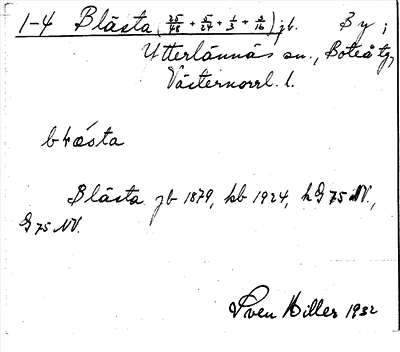 1-4 Blästa (25/48 + 5/24 + 1/3 + 3/16) jb. By;
Ytterlännäs sn., Boteå tg,
Västernorrl. l.
Blästa jb 1879, kb 1924, h G 75 NV.,
G 75 NV.
Sven Hiller 1932